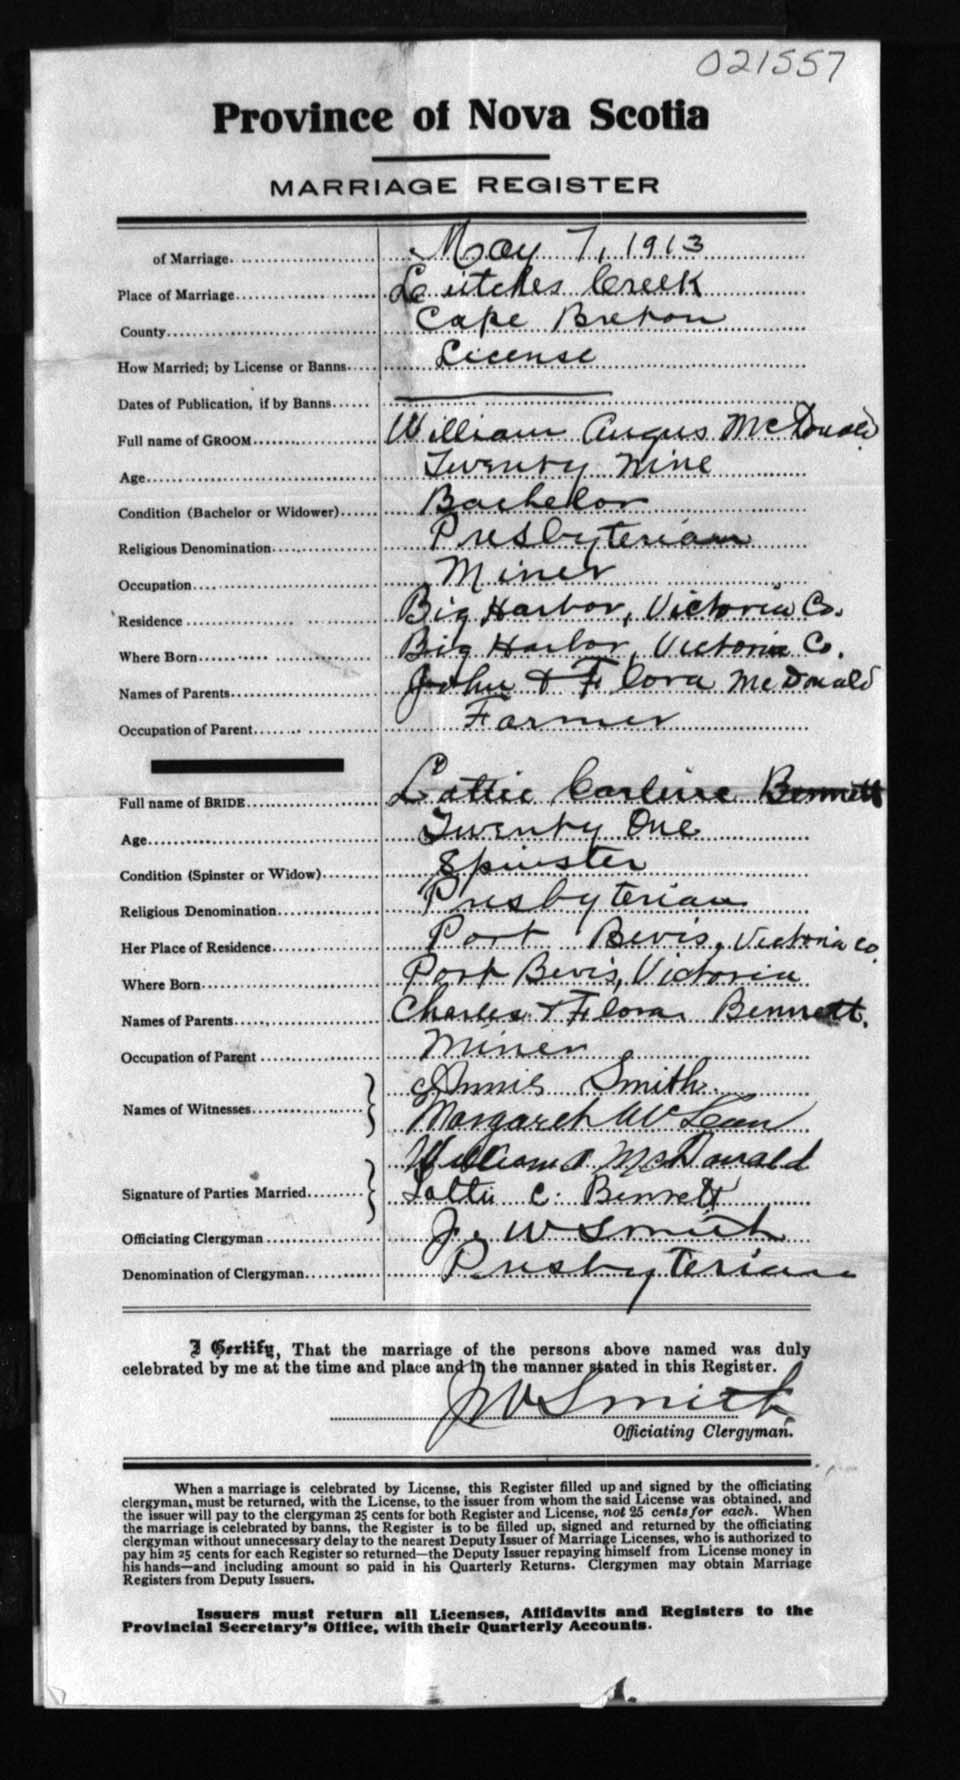 021557
Province of Nova Scotia
MARRIAGE REGISTER
of Marriage May 7, 1913
Place of Marriage Leitches Creek
County Cape Breton
How Married; by License or Banns License
Dates of Publication, if by Banns
Full name of GROOM William Angus McDonald
Age Twenty Nine
Condition (Bachelor or Widower) Bachelor
Religious Denomination Presbyterian
Occupation Miner
Residence Big Harbor, Victoria Co.
Where Born Big Harbor, Victoria Co.
Names of Parents John & Flora McDonald
Occupation of Parent Farmer
Full name of BRIDE Lattie Bennett
Age Twenty One
Condition (Spinster or Widow) Spinster
Religious Denomination Presbyterian
Her Place of Residence Port Bevis, Victoria Co.
Where Born Port Bevis, Victoria
Names of Parents Charles & Flora Bennett.
Occupation of Parent Miner
Annie Smith
Names of Witnesses
Margaret McLean
William A McDonald
Signature of Parties Married Lattie C. Bennett
Officiating Clergyman J. W Smith
Denomination of Clergyman Presbyterian
I Certify, That the marriage of the persons above named was duly
celebrated by me at the time and place and in the manner stated in this Register.
J W Smith
Officiating Clergyman.
When a marriage is celebrated by License, this Register filled up and signed by the officiating
clergyman, must be returned, with the License, to the issuer from whom the said License was obtained, and
the issuer will pay to the clergyman 25 cents for both Register and License, not 25 cents for each. When
the marriage is celebrated by banns, the Register is to be filled up, signed and returned by the officiating
clergyman without unnecessary delay to the nearest Deputy Issuer of Marriage Licenses, who is authorized to
pay him 25 cents for each Register so returned—the Deputy Issuer repaying himself from License money in
his hands—and including amount so paid in his Quarterly Returns. Clergymen may obtain Marriage
Registers from Deputy Issuers.
Issuers must return all Licenses, Affidavits and Registers to the
Provincial Secretary's Office, with their Quarterly Accounts.